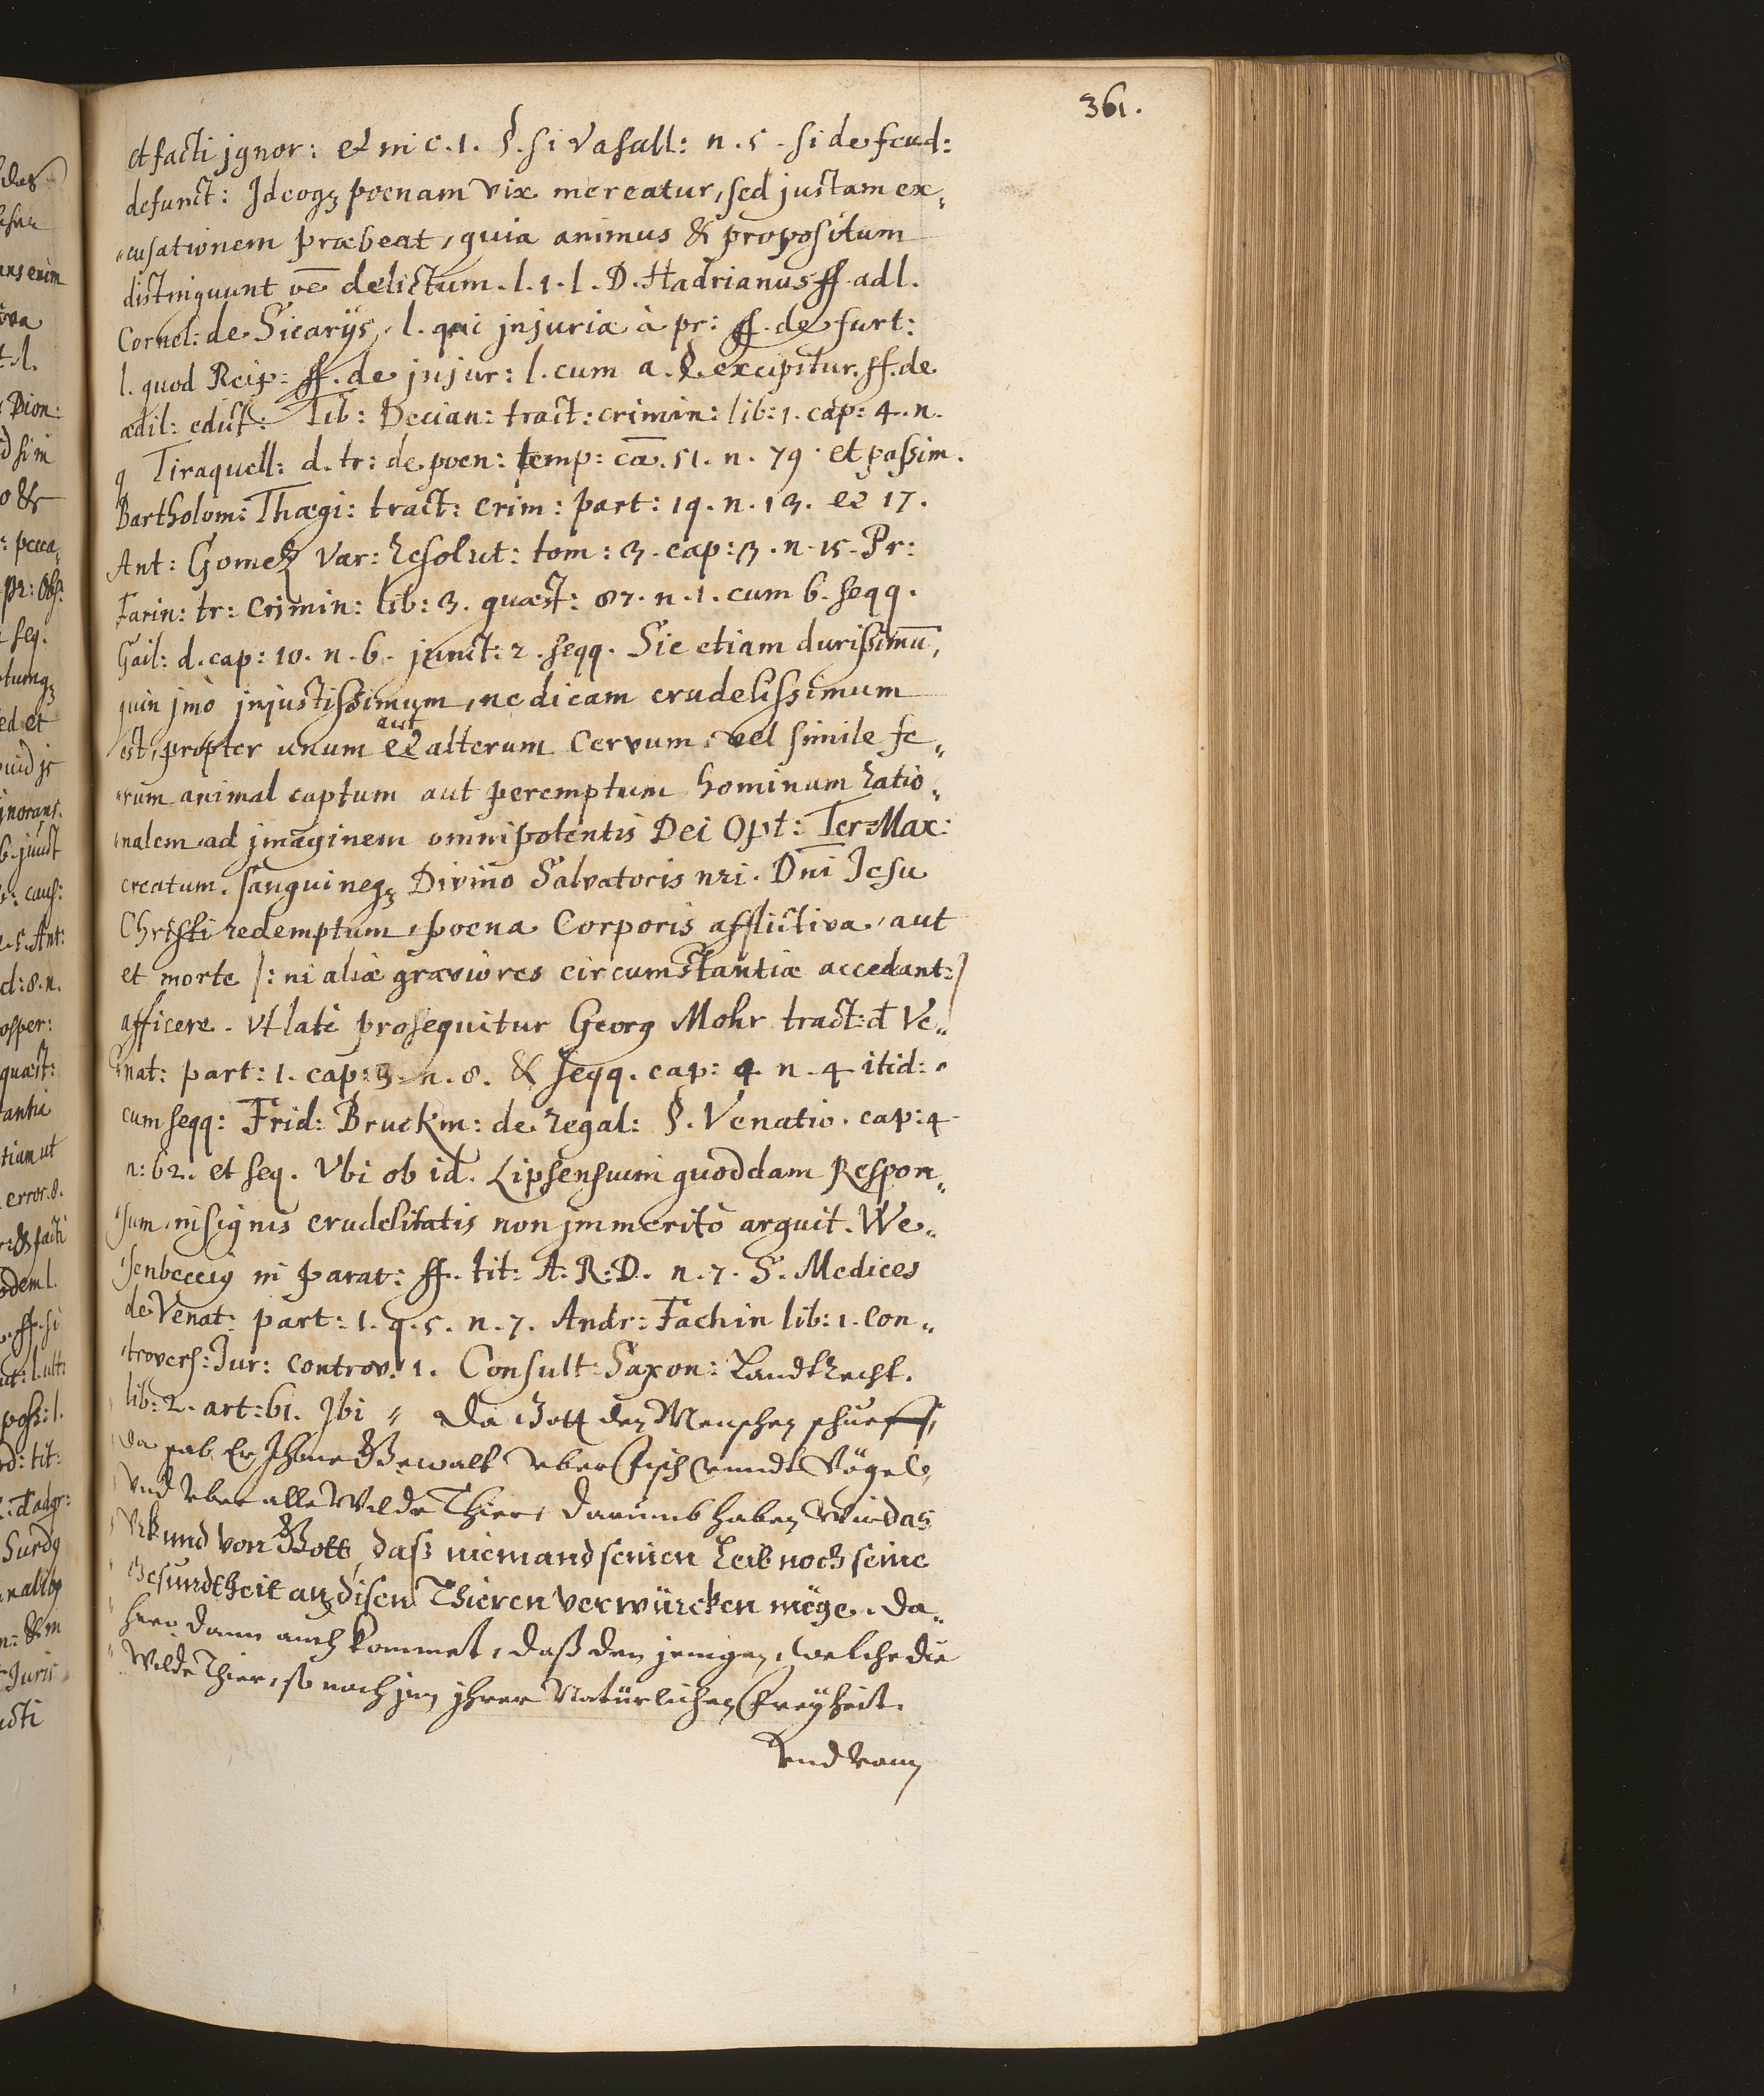 361.
et facti jgnor: et in c. 1. §. si Vasall: n. 5. si de feud:
defunct: Ideoqꝫ poenam vix mereatur, sed justam ex„
„cusationem præbeat, quia animus & propositum
distinguunt delictum. l. 1. l. D. Hadrianus ff. ad l.
Cornel: de Sicarijs, l. qui injuria à pr: ff. de furt:
l. quod Reip: ff. de jnjur: l. cum a. §. excipitur. ff. de
ædil: edict: Tib: Decian: tract: crimin: lib: 1. cap: 4. n.
9 Tiraquell: d. tr: de poen: temp: cā. 51. n. 79. et passim.
Bartholom: Thægi: tract: crim: part: 19. n. 13. et 17.
Ant: Gomez Var: resolut: tom: 3. cap: 3. n. 15. Pr:
Farin: tr: Crimin: lib: 3. quæst: 87. n. 1. cum 6. seqq.
Gail: d. cap: 10. n. 6. junct: 2. seqq. Sic etiam durissimū,
quin jmò jnjustissimum, ne dicam crudelissimum
est, propter unum et aut alterum Cervum, vel simile fe„
„rum animal captum aut peremptum hominem ratio„
„nalem ad jmaginem omnipotentis Dei Opt: Ter=Max:
creatum. sanguineqꝫ Divino Salvatoris nri. Dni Jesu
Christi redemptum, poena Corporis afflictiva, aut
et morte |: ni aliæ graviores circumstantiæ accedant:|
afficere. Vt latè prosequitur Georg Mohr tract: d Ve„
„nat: part: 1. cap: 3. n. 8. & seqq. cap: 4 n. 4 itid:
cum seqq: Frid: Bruckm: de regal: §. Venatio. cap: 4
n: 62. et seq. Vbi ob id. Lipsensium quoddam Respon„
„sum insignis crudelitatis non jmmeritò arguit. We„
„senbeccig in parat: ff. tit: A. R. D. n. 7. S. Medices
de Venat: part: 1. q. 5. n. 7. Andr: Fachin lib: 1. Con„
„trovers: Jur: controv. 1. Consult: Saxon: Landtrecht.
lib: 2. art: 61. Jbi „ Da Gott den Menschen schueff,
da gab Er Jhme Gewalt vber Fisch vnndt Vögel,
Vnd vber alle Wilde Thier, darumb haben wir das
Vrkund von Gott, daß niemand seinen Leib noch seine
Gesundtheit an disen Thieren verwürcken möge. Da„
hero dann auch kommet, daß den jenigen, welche die
Wilde Thier, so noch jnn jhrer Natürlichen Freyheit.
vnd vonn